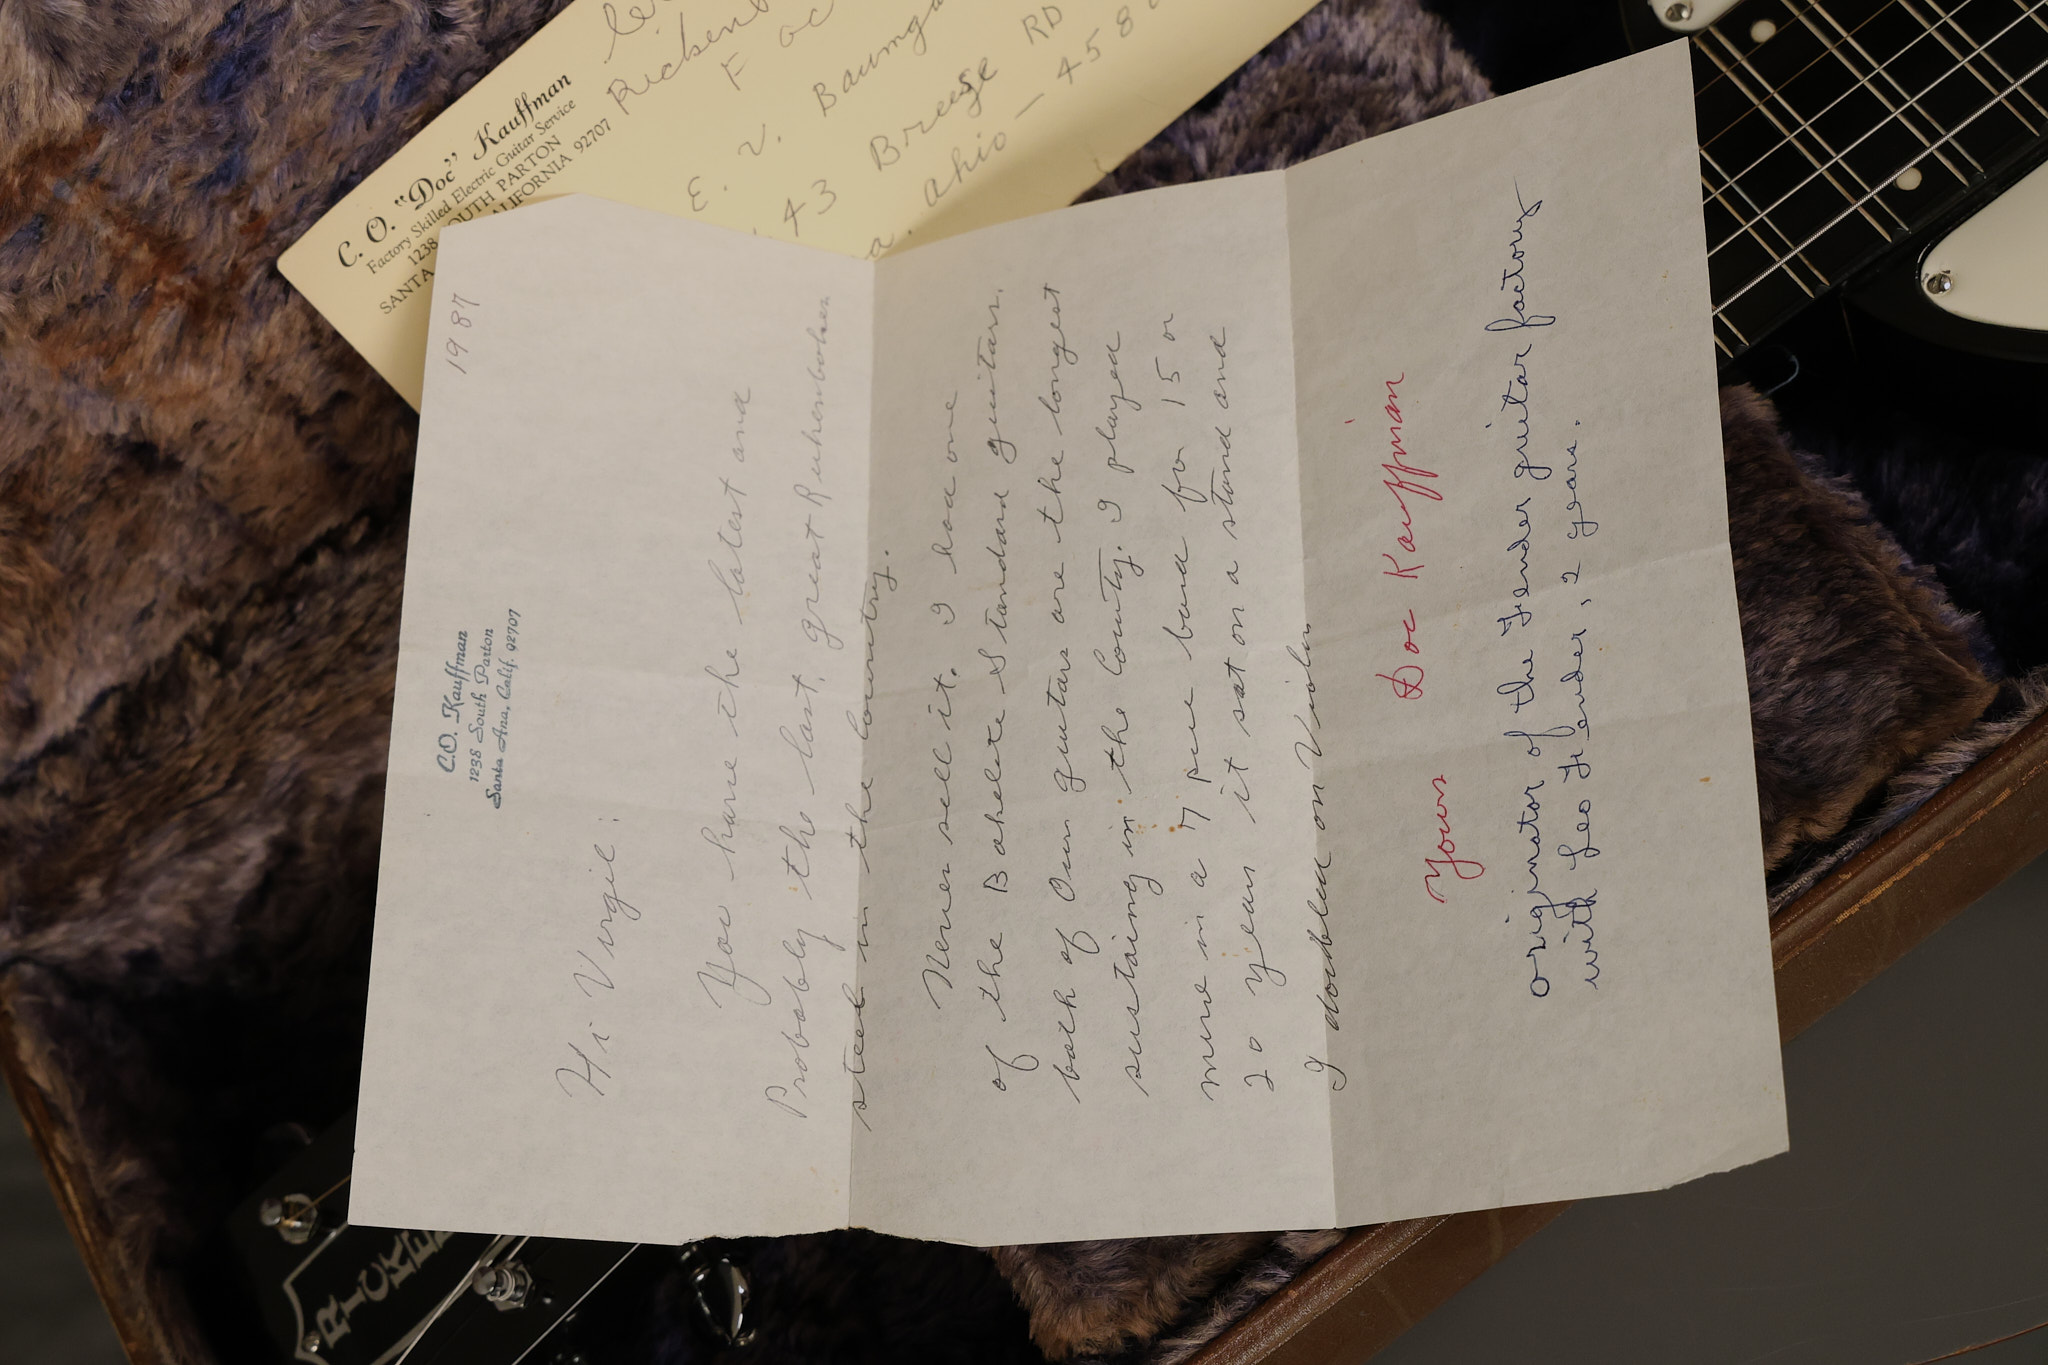 C. O. "Doc" Kauffman
Factory Skilled Electric Guitar Service
1238 SOUTH PARTON
SANTA CALIFORNIA 92707
F
E. V.
43 Breeze RD
Ohio — 458
1987
C.O. Kauffman
1238 South Parton
Santa Ana, Calif. 92707
Hi Virgil:
You have the latest and
Probably the last, great Rickenbacker
steel in the country.
Never sell it. I have one
of the Bakelite Standard guitars.
both of Our guitars are the longest
sustaining in the County. I played
mine in a 7 piece band for 15 or
20 years it sat on a stand and
I doubled on Violin
Yours Doc Kauffman
originator of the Fender guitar factory
with Leo Fender, 2 years.
RICKE